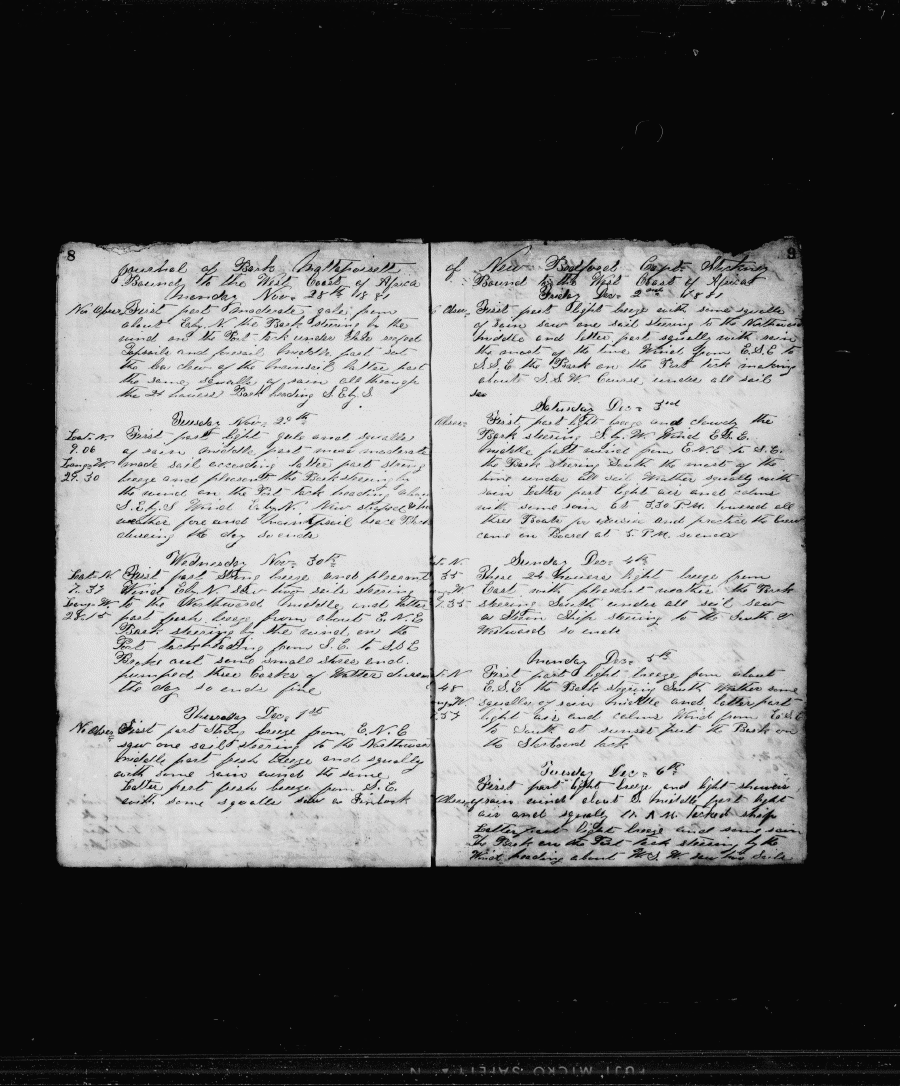 8
Journal of Bark Mattapoisett
Bound to the West Coast of Africa
Monday Nov 28th 1881
No Obser First part Moderate gale from
about E by N the Bark steering by the
wind on the Port tack under
Topsails and foresail Middle part set
the of the mainsail latter part
the same squalls of rain all through
the 24 hours Bark heading S.E by S
Tuesday Nov 29th
Lat. N. First part light gale and squalls
9.06 of rain middle part more moderate
Long. W. made sail according latter part strong
27.30 breeze and pleasant the Bark steering by
the wind on the Port tack heading about
S.E by S Wind E by N.
weather fore and main
during the day so ends
Wednesday Nov 30th
Lat. N. First part Strong breeze and pleasant
7.37 Wind E by N saw two sails steering
Long. W. to the Northward middle and latter
part fresh breeze from about E.N.E
Bark steering by the wind on the
Port tack heading from S.E. to S.S.E
Broke out some small stores and
pumped three Casks of Watter
the day so ends fine
Thursday Dec 1st
No Obser First part Strong breeze from E.N.E
saw one sail steering to the Northward
middle part fresh breeze and squally
with some rain wind the same
Latter part fresh breeze from S.E.
with some squalls saw a Finback
9
of New Bedford Capt.
Bound to the West Coast of Africa
Friday Dec 2nd 1881
Obser First part light breeze with some squalls
of rain saw one sail steering to the Northward
middle and latter part squally with rain
the most of the time Wind from E.S.E to
S.S.E the Bark on the Port tack making
about S.S.W Course under all sail
Saturday Dec 3rd
Obser First part light breeze and cloudy the
Bark steering S by W Wind E.S.E.
middle part wind from E.N.E to S.E.
the Bark steering South the most of the
time under all sail Wather squally with
rain Latter part light air and calms
with some rain at 3.30 P.M. lowered all
three Boats for exersise and practice the Crew
came on Board at 5 P.M. so ends
Sunday Dec 4th
N These 24 houers light breeze from
35 East with pleasent weather the Bark
steering South under all sail saw
a Steam Ship steering to the South &
Westward so ends
Monday Dec 5th
N First part light breeze from about
48 E.S.E the Bark steering South Wather some
W squally of rain middle and latter part
57 light air and calms Wind from E.S.E
to South at sunset put the Bark on
the Starboard tack
Tuesday Dec 6th
First part light breeze and light showers
Obser of rain wind about S. middle part light
air and squally A.M. tacked ship
Latter part light breeze and some rain
The Bark on the Port tack steering by the
Wind heading about W.S.W. saw two sails